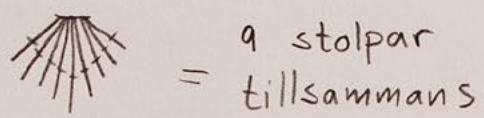 = 9 stolpar
tillsammans